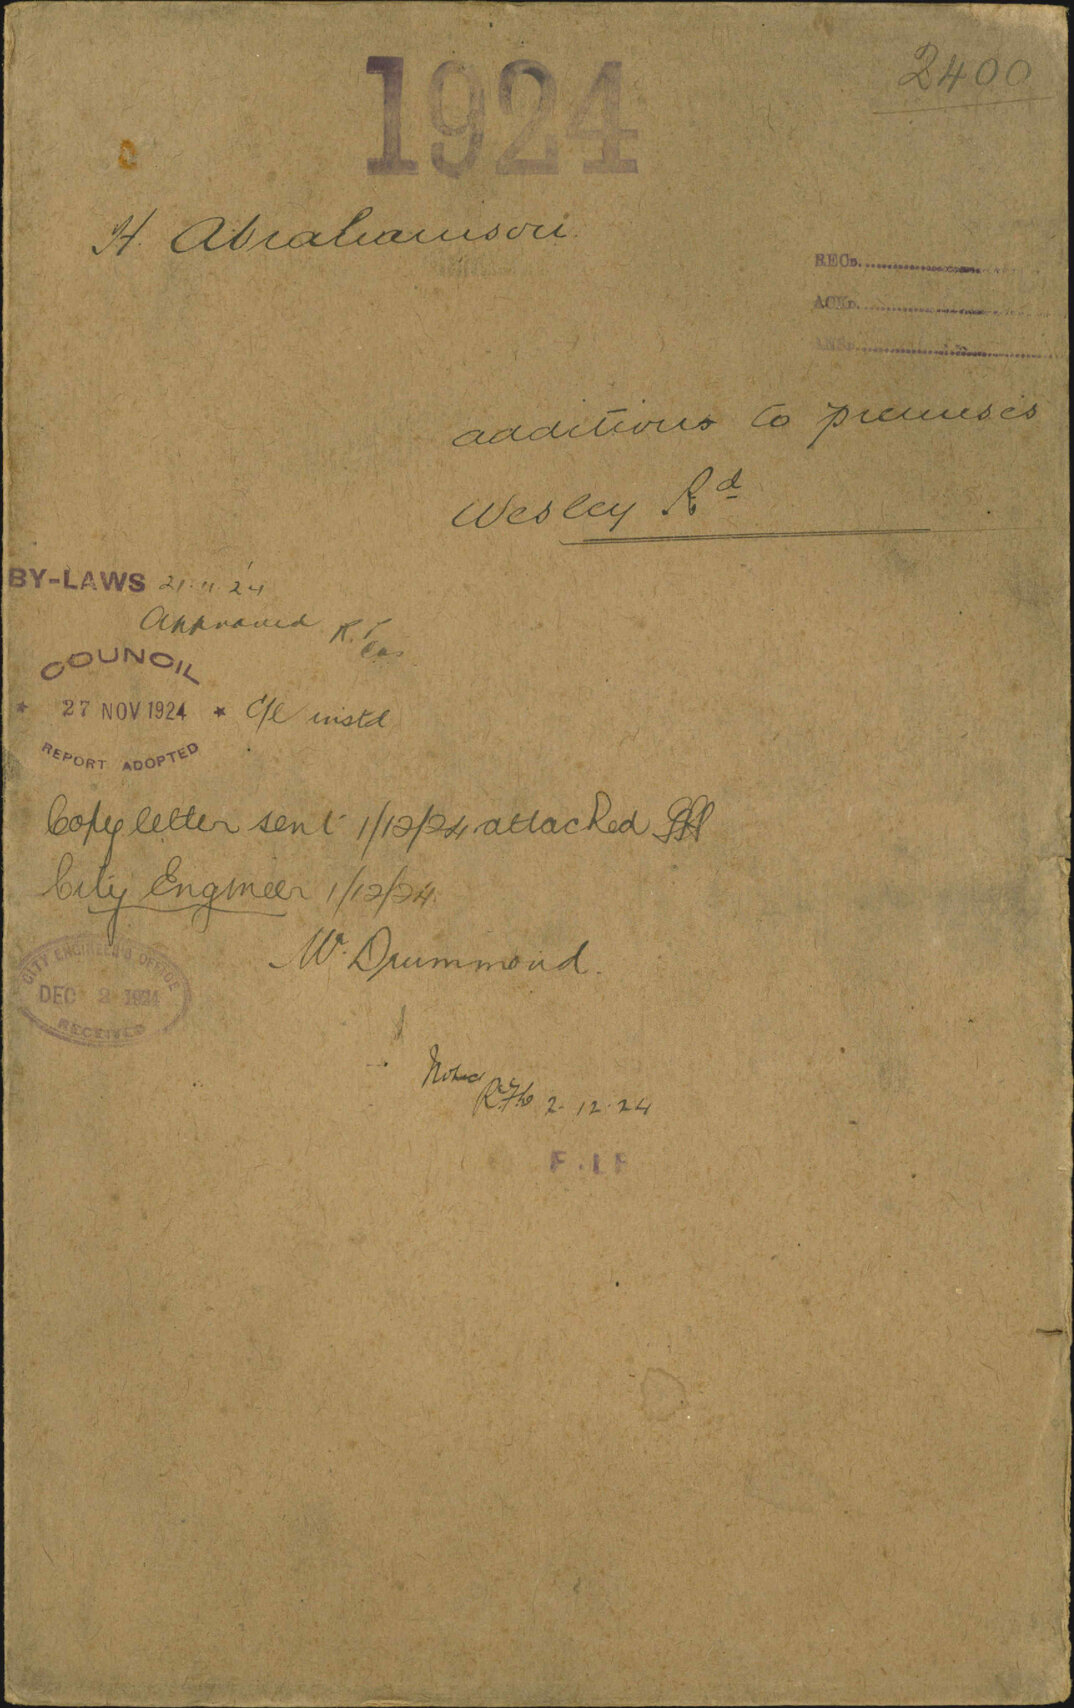 1924
2400
H. Abrahamson
RECD.
ACKD.
ANSD.
additions to premises
Wesley Rd
BY-LAWS 21.11.24
Approved
COUNCIL
★ 27 NOV 1924 ★ C/E instd
REPORT ADOPTED
Copy letter sent 1/12/24 attached
City Engineer 1/12/24
W. Drummond.
CITY ENGINEER'S OFFICE
DEC 2 1924
RECEIVED
Noted
2.12.24